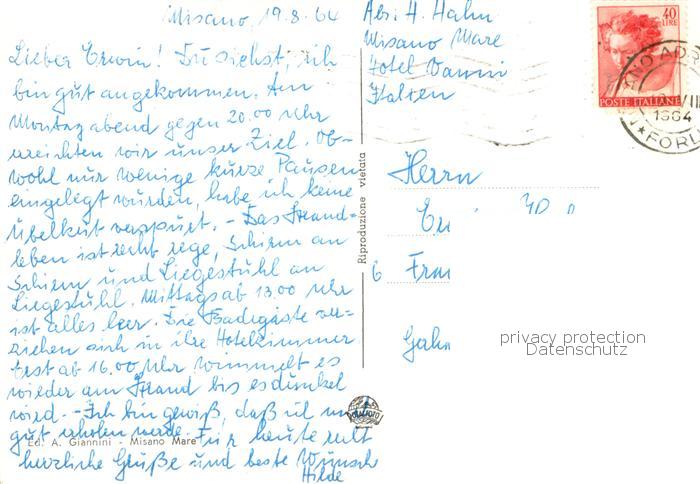 Misano, 19.8.64
Lieber Erwin! Du siehst, ich
bin gut angekommen. Am
Montag abend gegen 20.00 Uhr
erreichten wir unser Ziel. Ob-
wohl nur wenige kurze Pausen
eingelegt wurden, habe ich keine
Übelkeit verspürt. - Das Strand-
leben ist recht rege, Schirm an
Schirm und Liegestuhl an
Liegestuhl. Mittags ab 13.00 Uhr
ist alles leer. Die Badegäste ver-
ziehen sich in ihre Hotelzimmer
Erst ab 16.00 Uhr wimmelt es
wieder am Strand bis es dunkel
wird. - Ich bin gewiß, daß ich mich
gut erholen werde. Für heute recht
herzliche Grüße und beste Wünsche
Hilde
Ed. A. Giannini - Misano Mare
Riproduzione vietata
Abs. H. Hahn
Misano Mare
Hotel Vanni
Italien
40
LIRE
POSTE ITALIANE
1964
FORLI
Herrn
6
privacy protection
Datenschutz